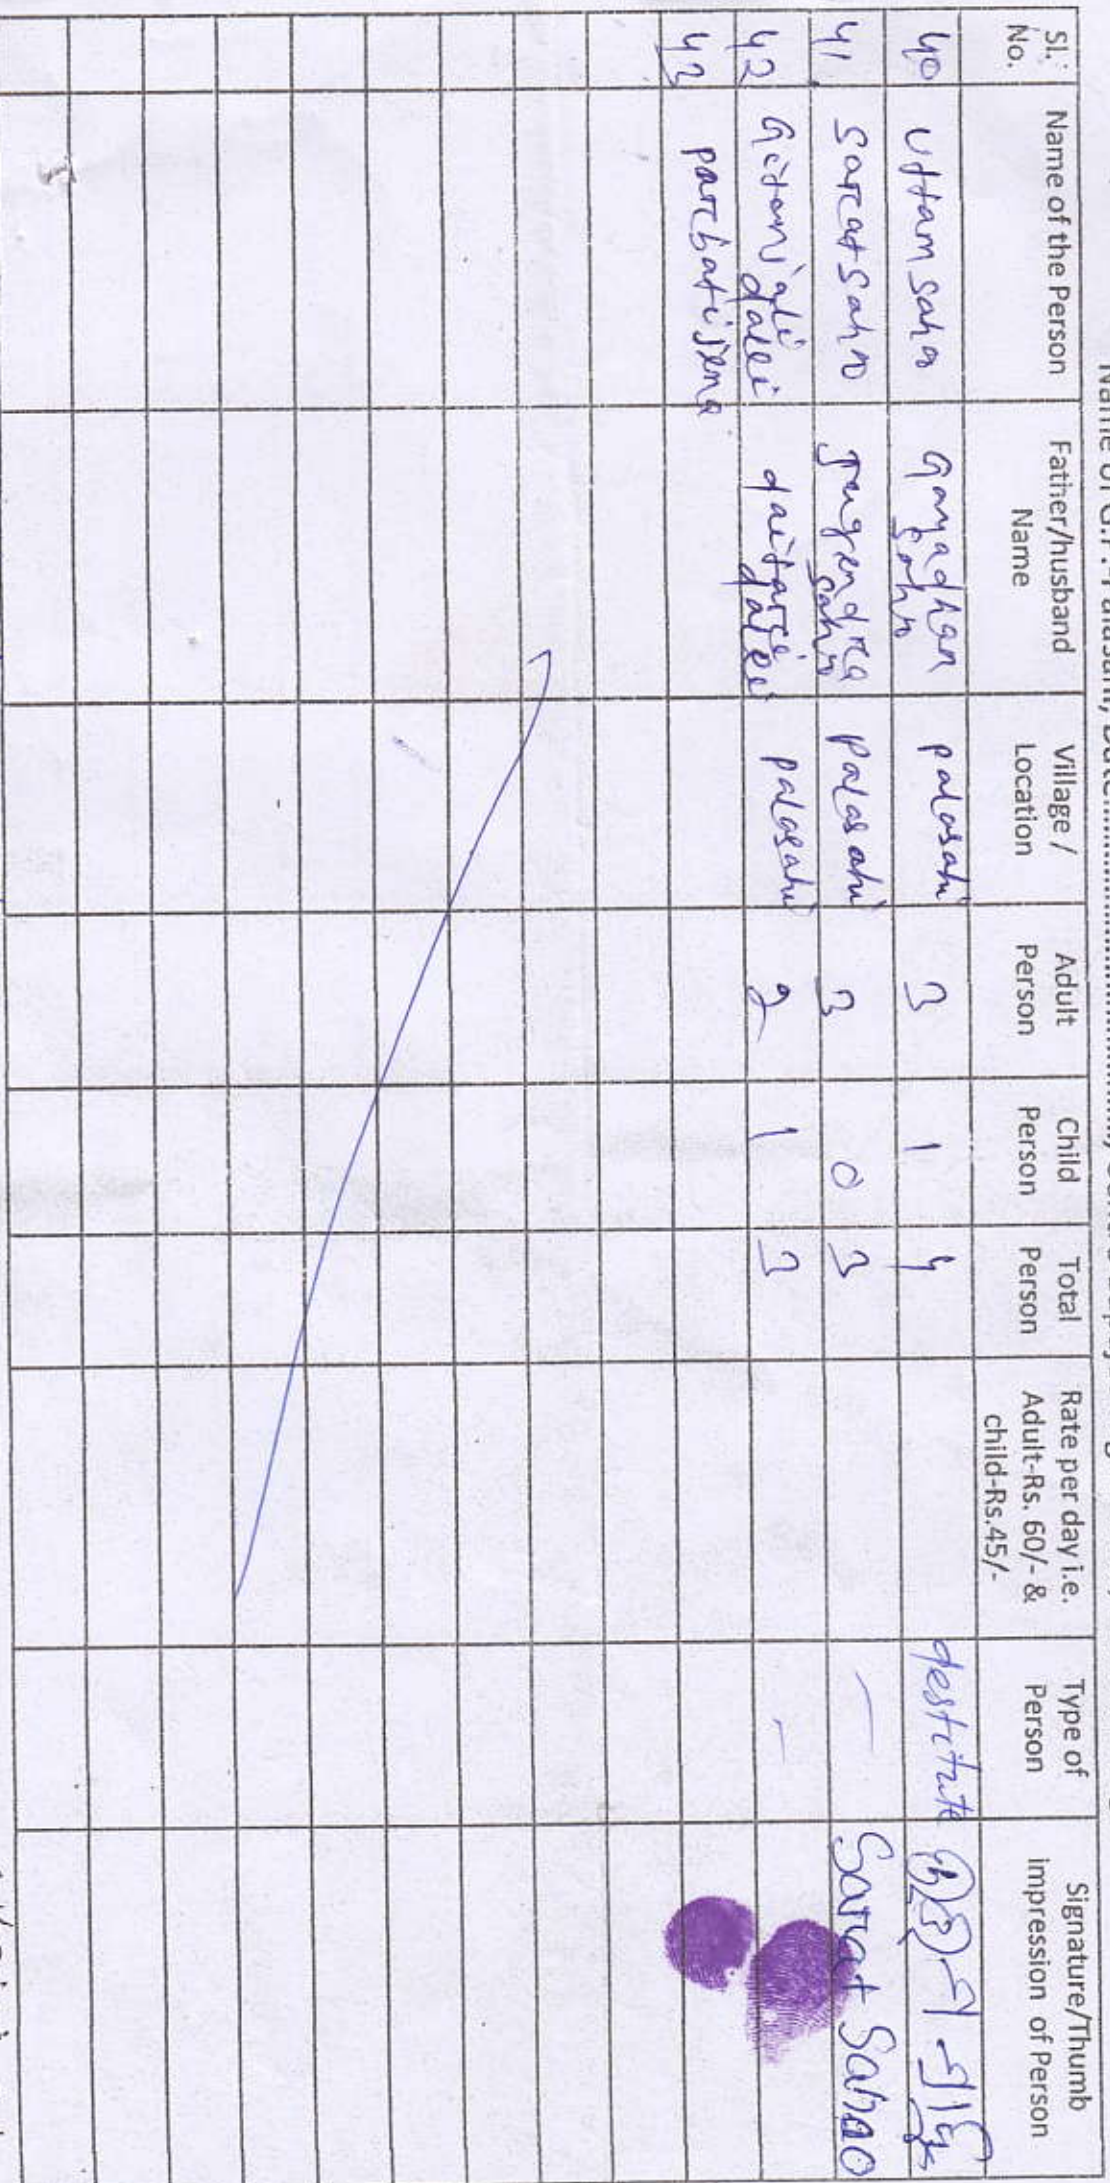 Sl. No. Name of the Person Father/husband Name Village / Location Adult Person Child Person Total Person Rate per day i.e. Adult-Rs. 60/- & child-Rs.45/- Type of Person Signature/Thumb impression of Person
40 Uttam Saho Gayadhan Saho palasahi 3 1 4 destitute
41. Sarcat Saho Palasahi 3 0 3 — Sarat Sahoo
42 dalei daitarei dalei palasahi 2 1 3 —
43 parcbati Jena